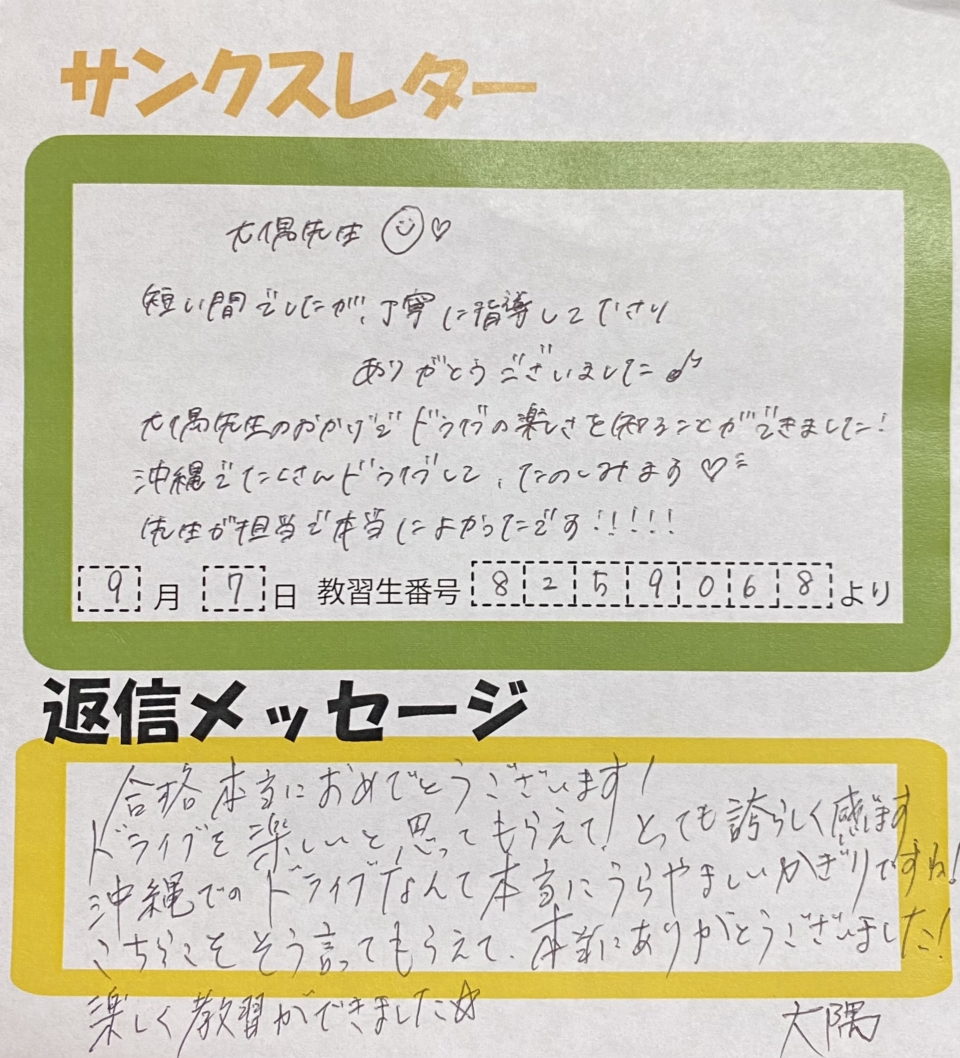 サンクスレター
大隅先生
短い間でしたが、丁寧に指導して下さり
ありがとうございました♪
大隅先生のおかげでドライブの楽しさを知ることができました!
沖縄でたくさんドライブして、たのしみます♡
先生が担当で本当によかったです!!!!!
9月7日 教習生番号 8259068より
返信メッセージ
合格本当におめでとうございます!
ドライブを楽しいと思ってもらえて!とっても誇らしく感じます
沖縄でのドライブなんて本当にうらやましいかぎりですね!
こちらこそそう言ってもらえて、本当にありがとうございました!
楽しく教習ができました☆
大隅